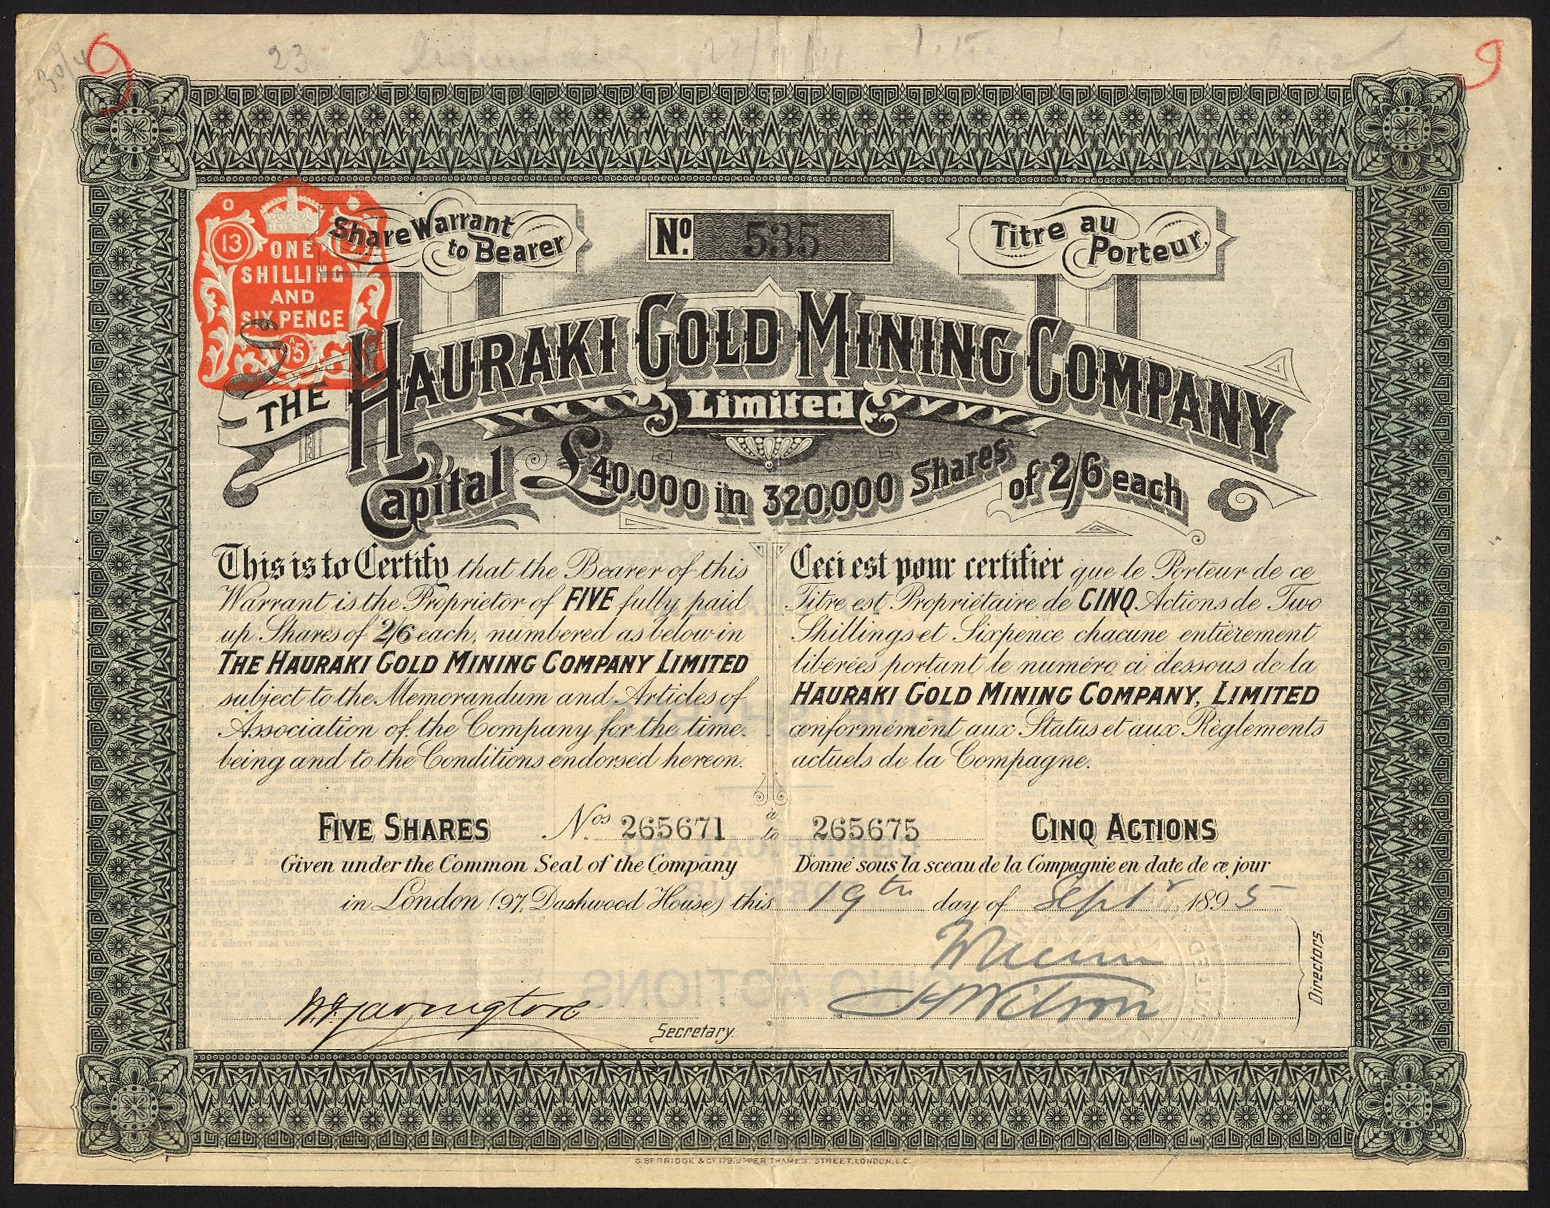 23
9
9
Share Warrant
to Bearer
No. 535
Titre au
Porteur.
13
ONE
SHILLING
AND
SIX PENCE
THE HAURAKI GOLD MINING COMPANY
Limited
Capital £40,000 in 320,000 Shares of 2/6 each
This is to Certify that the Bearer of this
Warrant is the Proprietor of FIVE fully paid
up Shares of 2/6 each, numbered as below in
THE HAURAKI GOLD MINING COMPANY LIMITED
subject to the Memorandum and Articles of
Association of the Company for the time
being and to the Conditions endorsed hereon.
Ceci est pour certifier que le Porteur de ce
Titre est Propriétaire de CINQ Actions de Two
Shillings et Sixpence chacune entièrement
libérées portant le numéro ci dessous de la
HAURAKI GOLD MINING COMPANY, LIMITED
conformément aux Status et aux Règlements
actuels de la Compagne.
FIVE SHARES Nos 265671 à to 265675 CINQ ACTIONS
Given under the Common Seal of the Company Donné sous la sceau de la Compagnie en date de ce jour
in London (97, Dashwood House) this 19th day of Septr 1895
Wilson
Directors.
Secretary.
G. BERRIDGE & Co 179, UPPER THAMES STREET, LONDON, E.C.